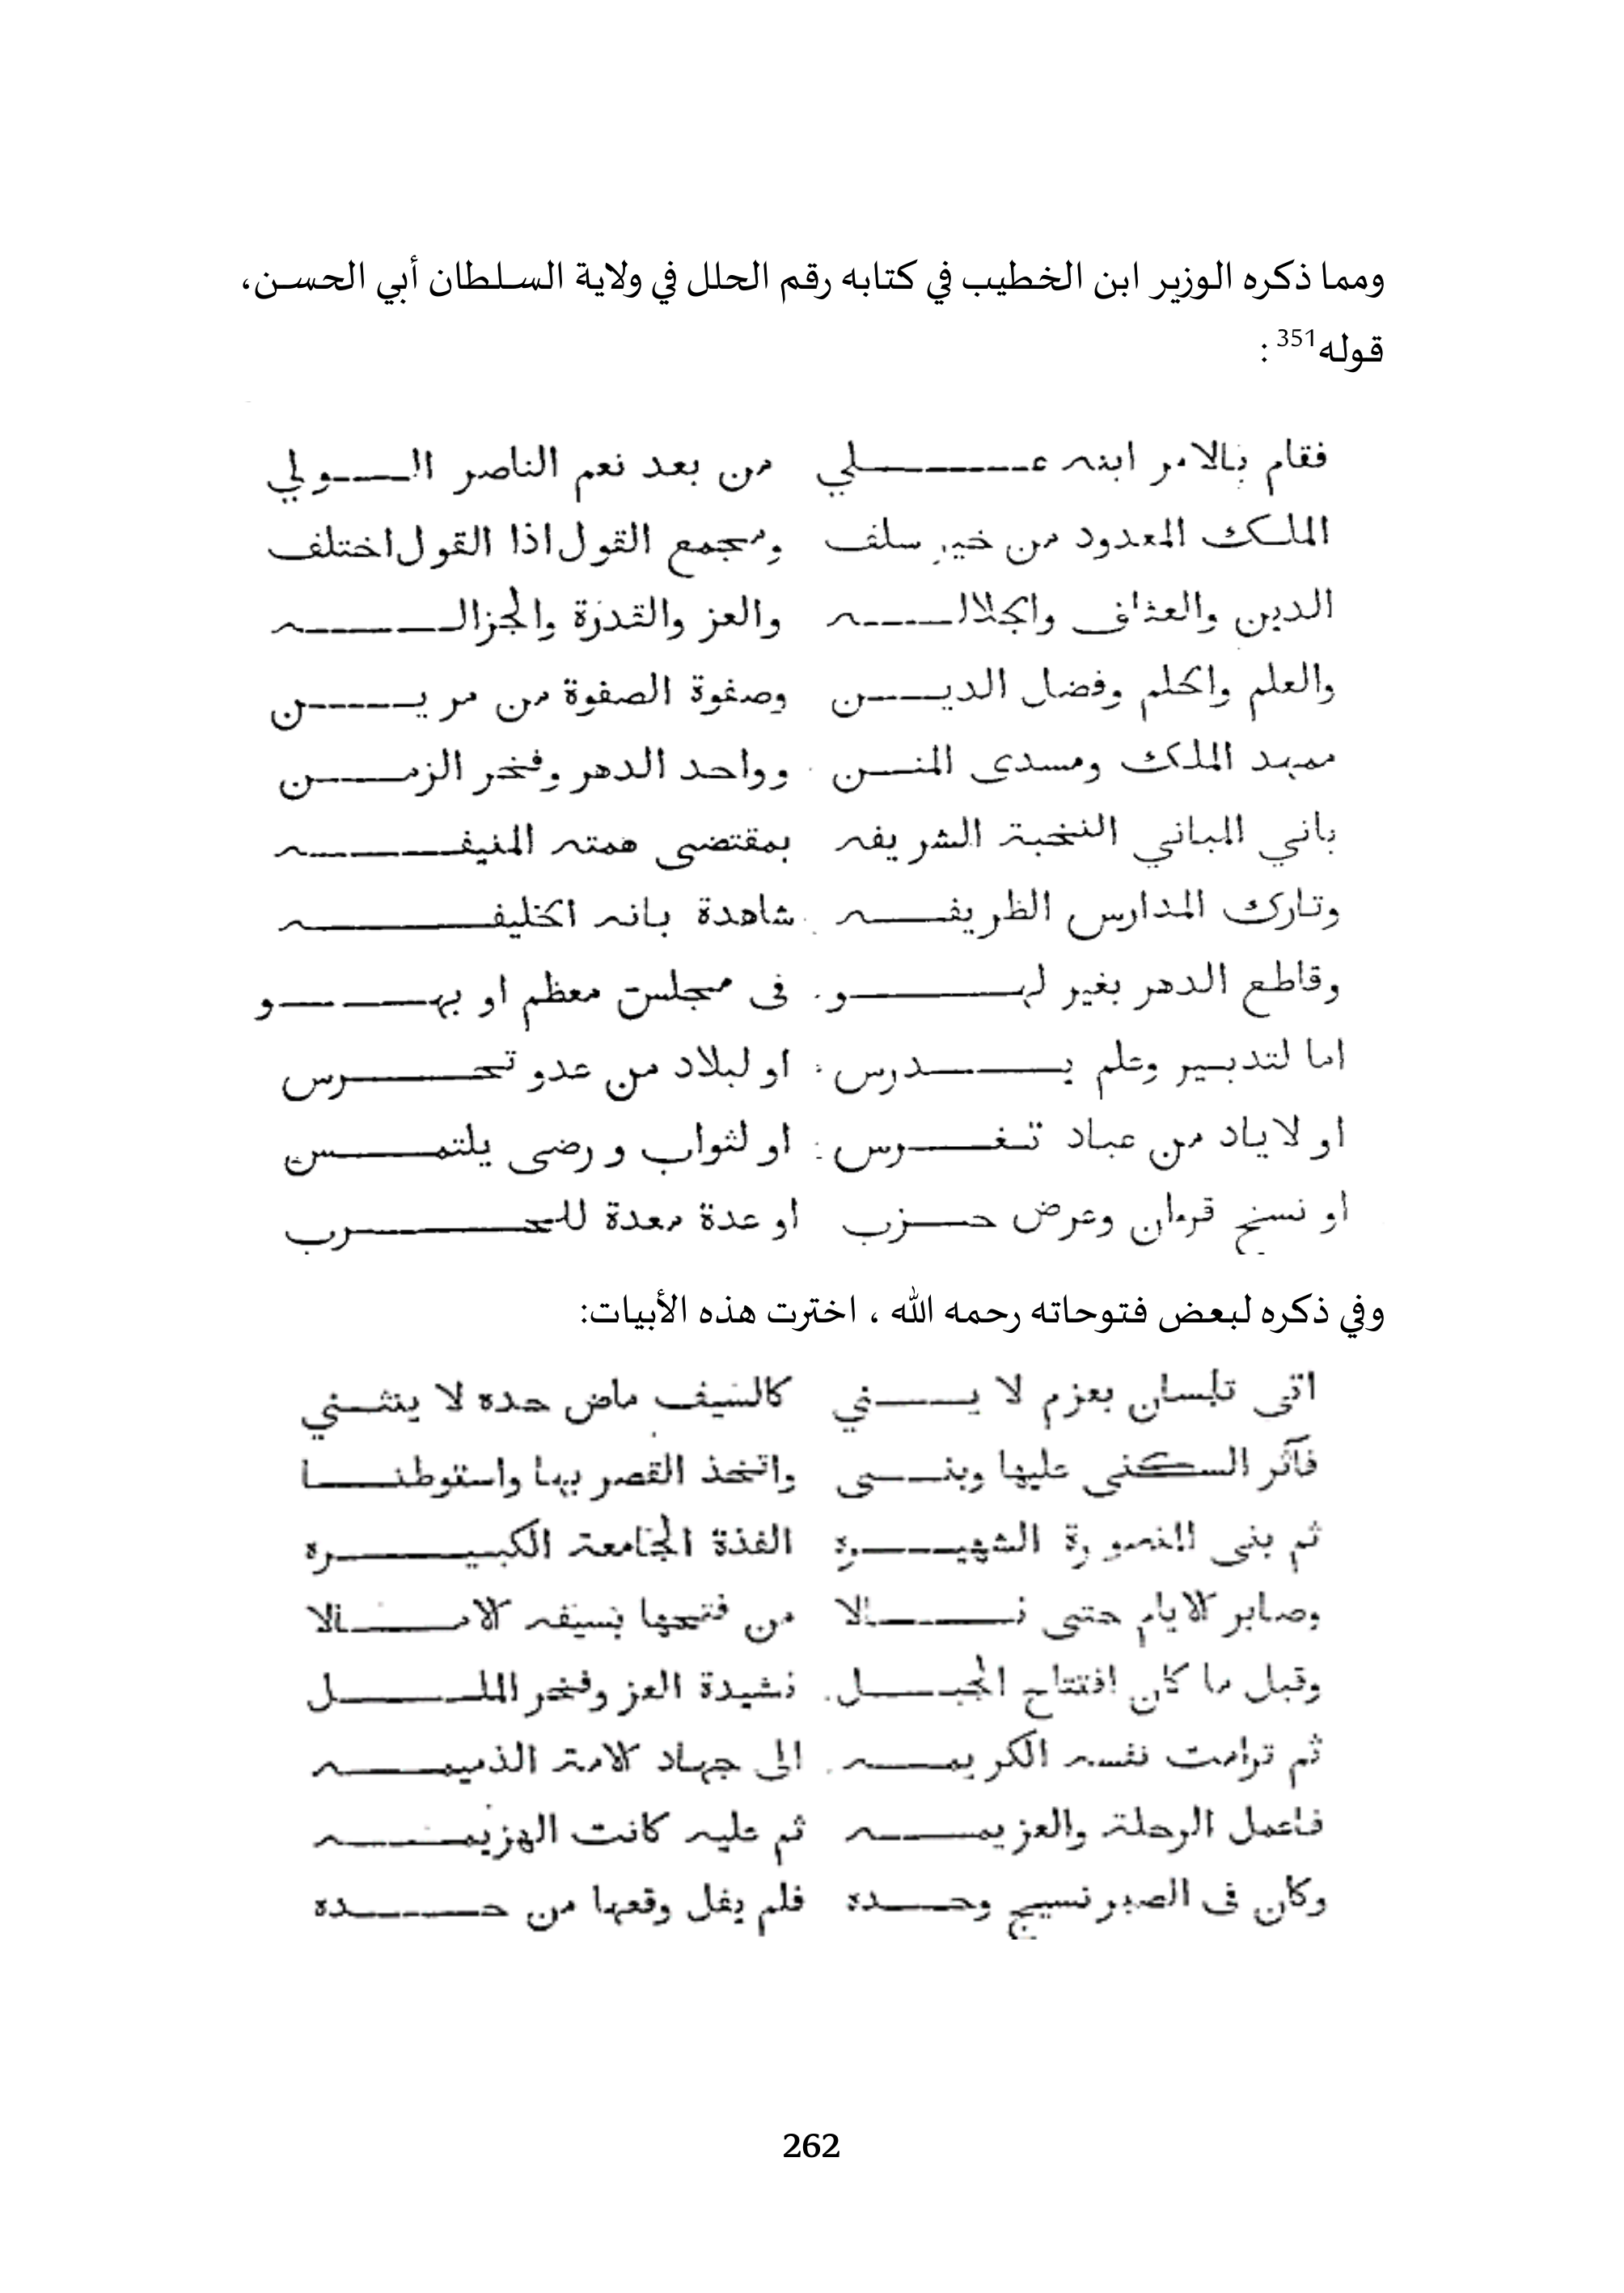 ومما ذكره الوزير ابن الخطيب في كتابه رقم الحلل في ولاية السلطان أبي الحسن،
قوله351 :
فقام بالامر ابنه علي من بعد نعم الناصر الولي
الملك المعدود من خير سلف ومجمع القول اذا القول اختلف
الدين والعفاف والجلاله والعز والقدرة والجزاله
والعلم والحلم وفضل الدين وصفوة الصفوة من مرين
ممهد الملك ومسدى المنن وواحد الدهر وفخر الزمن
باني المباني النخبة الشريفه بمقتضى همته المنيفه
وتارك المدارس الظريفه شاهدة بانه الخليفه
وقاطع الدهر بغير لهو فى مجلس معظم او بهو
اما لتدبير وعلم يدرس او لبلاد من عدو تحرس
او لاياد من عباد تغرس او لثواب ورضى يلتمس
او نسخ قرءان وعرض حزب او عدة معدة للحرب
وفي ذكره لبعض فتوحاته رحمه الله ، اخترت هذه الأبيات:
اتى تلمسان بعزم لا يني كالسيف ماض حده لا ينثني
فآثر السكنى عليها وبنى واتخذ القصر بها واستوطنا
ثم بنى المنصورة الشهيرة الفذة الجامعة الكبيره
وصابر الايام حتى نالا من فتحها بسيفه الامالا
وقبل ما كان افتتاح الجبل نشيدة العز وفخر الملل
ثم ترامت نفسه الكريمه الى جهاد الامة الذميمه
فاعمل الرحلة والعزيمه ثم عليه كانت الهزيمه
وكان فى الصبر نسيج وحده فلم يفل وقعها من حده
262